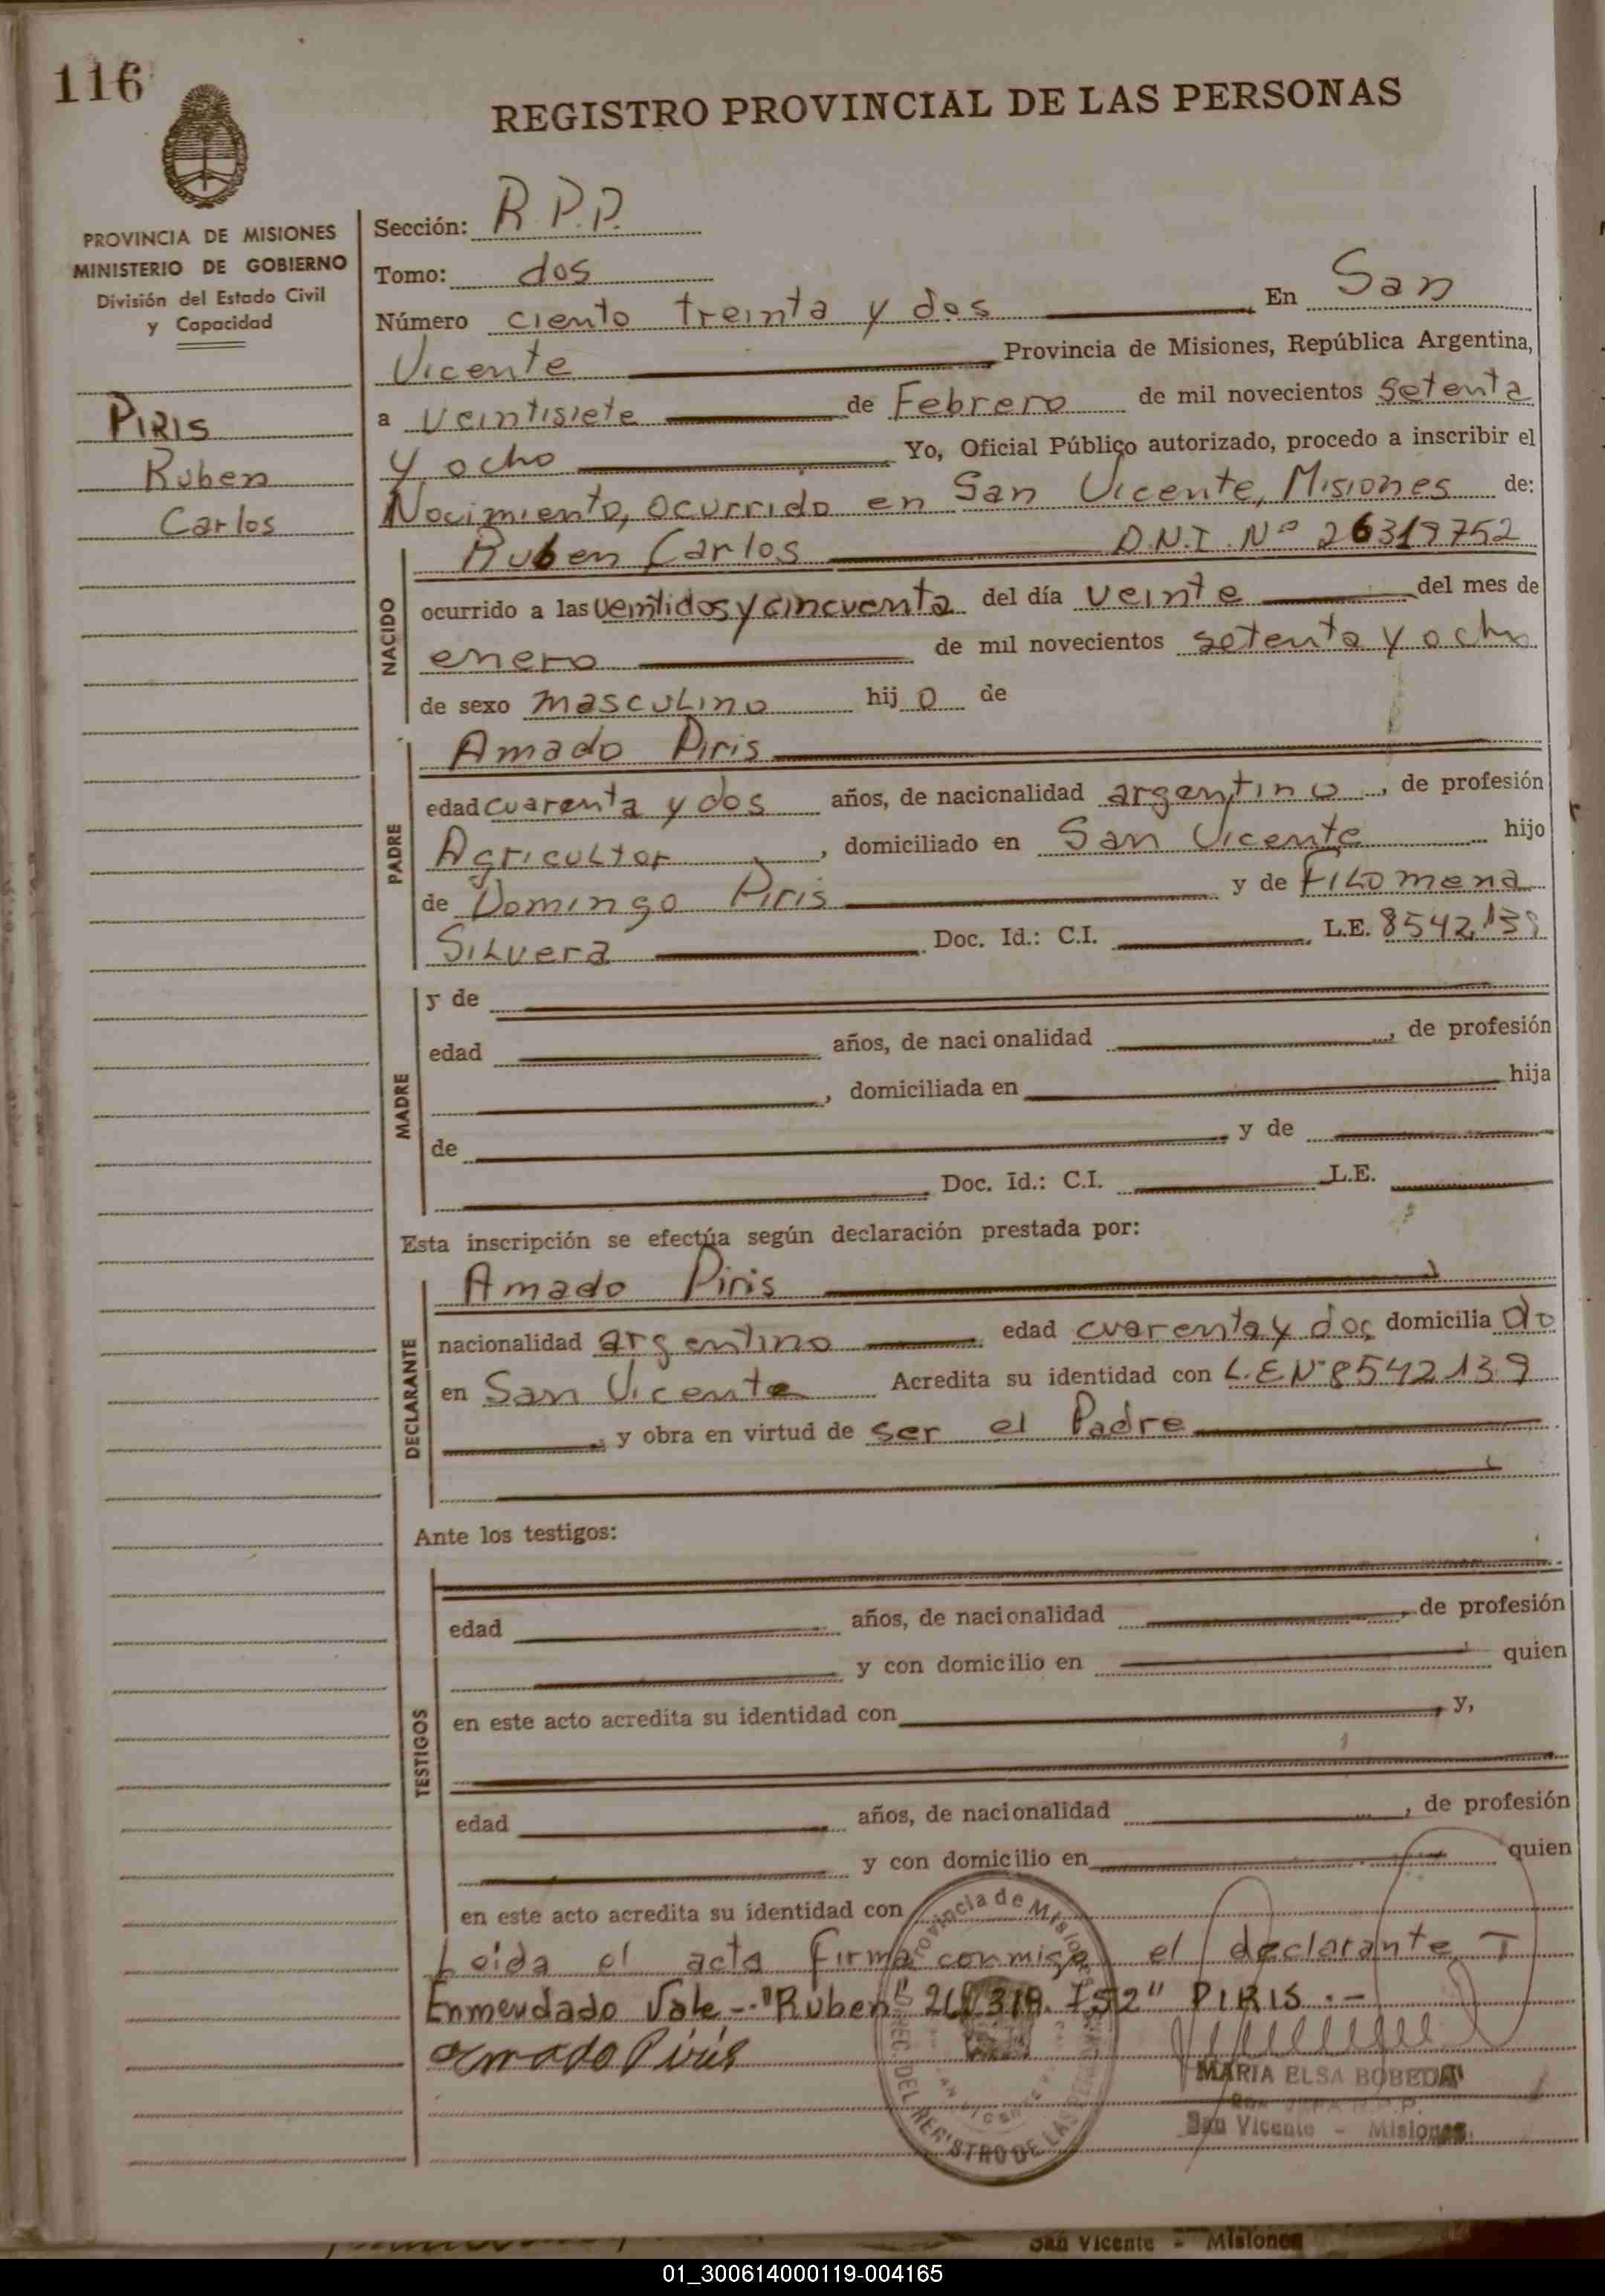 116
REGISTRO PROVINCIAL DE LAS PERSONAS
PROVINCIA DE MISIONES
MINISTERIO DE GOBIERNO
División del Estado Civil
y Capacidad
PIRIS
Ruben
Carlos
Sección: R.P.P.
Tomo: dos
Número ciento treinta y dos En San
Vicente Provincia de Misiones, República Argentina,
a veintisiete de Febrero de mil novecientos setenta
y ocho Yo, Oficial Público autorizado, procedo a inscribir el
Nacimiento, ocurrido en San Vicente, Misiones de:
Ruben Carlos D.N.I. Nº 26319752
NACIDO
ocurrido a las veintidos y cincuenta del día veinte del mes de
enero de mil novecientos setenta y ocho
de sexo masculino hij o de
PADRE
Amado Piris
edad cuarenta y dos años, de nacionalidad argentino, de profesión
Agricultor, domiciliado en San Vicente hijo
de Domingo Piris y de Filomena
Silvera Doc. Id.: C.I. L.E. 8542,139
MADRE
y de
edad años, de nacionalidad , de profesión
, domiciliada en hija
de y de
Doc. Id.: C.I. L.E.
Esta inscripción se efectúa según declaración prestada por:
DECLARANTE
Amado Piris
nacionalidad argentino edad cuarenta y dos domicilia do
en San Vicente Acredita su identidad con L.E Nº 8542139
y obra en virtud de ser el Padre
Ante los testigos:
TESTIGOS
edad años, de nacionalidad , de profesión
y con domicilio en quien
en este acto acredita su identidad con y,
edad años, de nacionalidad , de profesión
y con domicilio en quien
en este acto acredita su identidad con
Leida el acta firma conmigo el declarante
Enmendado Vale -. "Ruben" PIRIS .-
Amado Piris
MARIA ELSA BOBEDA
San Vicente - Misiones
San Vicente - Misiones
01_300614000119-004165